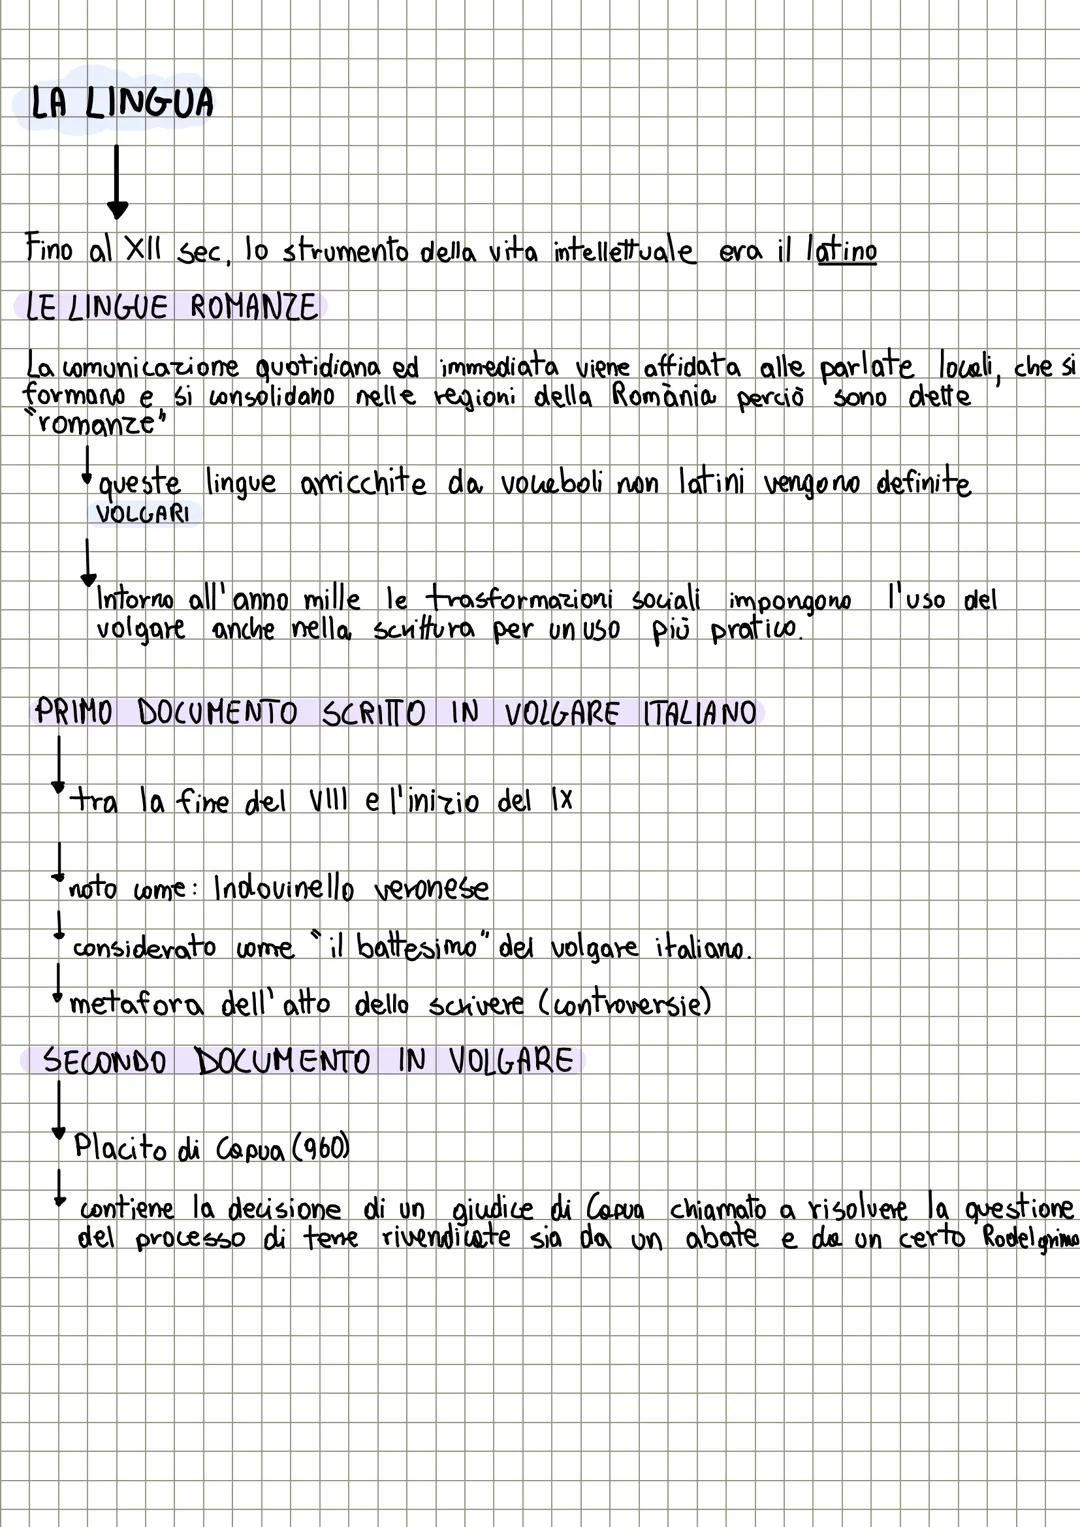 LA LINGUA
Fino al XII sec, lo strumento della vita intellettuale era il latino
LE LINGUE ROMANZE
La comunicazione quotidiana ed immediata viene affidata alle parlate locali, che si
formano e si consolidano nelle regioni della Romània perciò sono dette
"romanze"
queste lingue arricchite da vocaboli non latini vengono definite
VOLGARI
Intorno all'anno mille le trasformazioni sociali impongono l'uso del
volgare anche nella scrittura per un uso più pratico.
PRIMO DOCUMENTO SCRITTO IN VOLGARE ITALIANO
tra la fine del VIII e l'inizio del IX
noto come: Indovinello veronese
considerato come "il battesimo" del volgare italiano.
metafora dell'atto dello scrivere (controversie)
SECONDO DOCUMENTO IN VOLGARE
Placito di Capua (960)
contiene la decisione di un giudice di Capua chiamato a risolvere la questione
del processo di terre rivendicate sia da un abate e da un certo Rodelgrimo